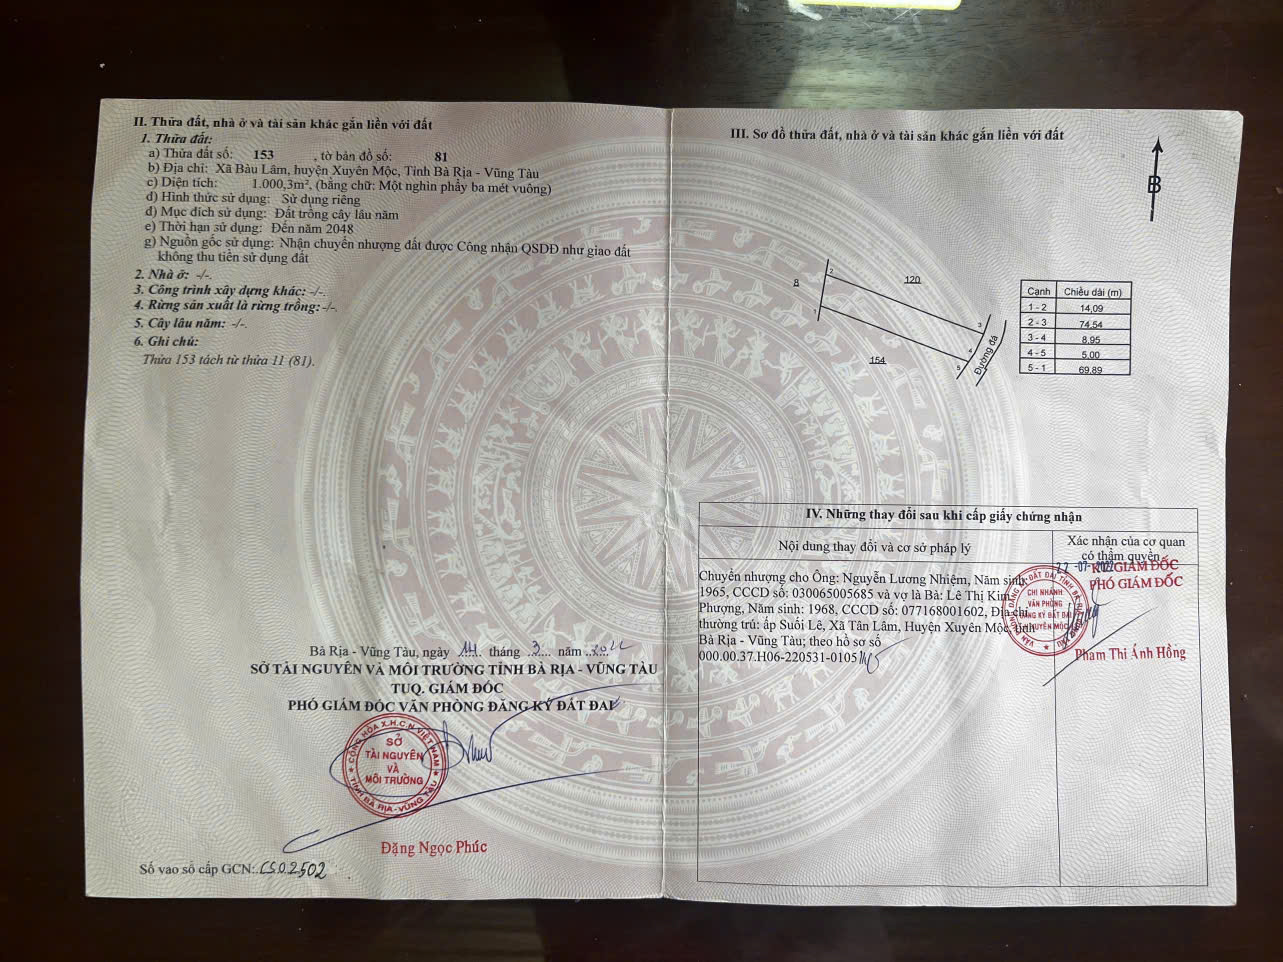 II. Thửa đất, nhà ở và tài sản khác gắn liền với đất
1. Thửa đất:
a) Thửa đất số: 153 , tờ bản đồ số: 81
b) Địa chỉ: Xã Bàu Lâm, huyện Xuyên Mộc, Tỉnh Bà Rịa - Vũng Tàu
c) Diện tích: 1.000,3m², (bằng chữ: Một nghìn phẩy ba mét vuông)
d) Hình thức sử dụng: Sử dụng riêng
đ) Mục đích sử dụng: Đất trồng cây lâu năm
e) Thời hạn sử dụng: Đến năm 2048
g) Nguồn gốc sử dụng: Nhận chuyển nhượng đất được Công nhận QSDĐ như giao đất
không thu tiền sử dụng đất
2. Nhà ở: -/-.
3. Công trình xây dựng khác: -/-.
4. Rừng sản xuất là rừng trồng: -/-.
5. Cây lâu năm: -/-.
6. Ghi chú:
Thửa 153 tách từ thửa 11 (81).
Bà Rịa - Vũng Tàu, ngày 14 tháng 3 năm 2022
SỞ TÀI NGUYÊN VÀ MÔI TRƯỜNG TỈNH BÀ RỊA - VŨNG TÀU
TUQ. GIÁM ĐỐC
PHÓ GIÁM ĐỐC VĂN PHÒNG ĐĂNG KÝ ĐẤT ĐAI
CỘNG HÒA X.H.C.N VIỆT NAM
SỞ
TÀI NGUYÊN
VÀ
MÔI TRƯỜNG
TỈNH BÀ RỊA - VŨNG TÀU
Đặng Ngọc Phúc
Số vào sổ cấp GCN: CS02502
III. Sơ đồ thửa đất, nhà ở và tài sản khác gắn liền với đất
B
8
2
120
1
3
4
5
154
Đường đá
Cạnh Chiều dài (m)
1 - 2 14,09
2 - 3 74,54
3 - 4 8,95
4 - 5 5,00
5 - 1 69,89
IV. Những thay đổi sau khi cấp giấy chứng nhận
Nội dung thay đổi và cơ sở pháp lý
Xác nhận của cơ quan
có thẩm quyền
Chuyển nhượng cho Ông: Nguyễn Lương Nhiệm, Năm sinh:
1965, CCCD số: 030065005685 và vợ là Bà: Lê Thị Kim
Phượng, Năm sinh: 1968, CCCD số: 077168001602, Địa chỉ
thường trú: ấp Suối Lê, Xã Tân Lâm, Huyện Xuyên Mộc, tỉnh
Bà Rịa - Vũng Tàu; theo hồ sơ số
000.00.37.H06-220531-0105
-07-2022
KT. GIÁM ĐỐC
PHÓ GIÁM ĐỐC
CHI NHÁNH
VĂN PHÒNG
ĐĂNG KÝ ĐẤT ĐAI
H. XUYÊN MỘC
Phạm Thị Ánh Hồng